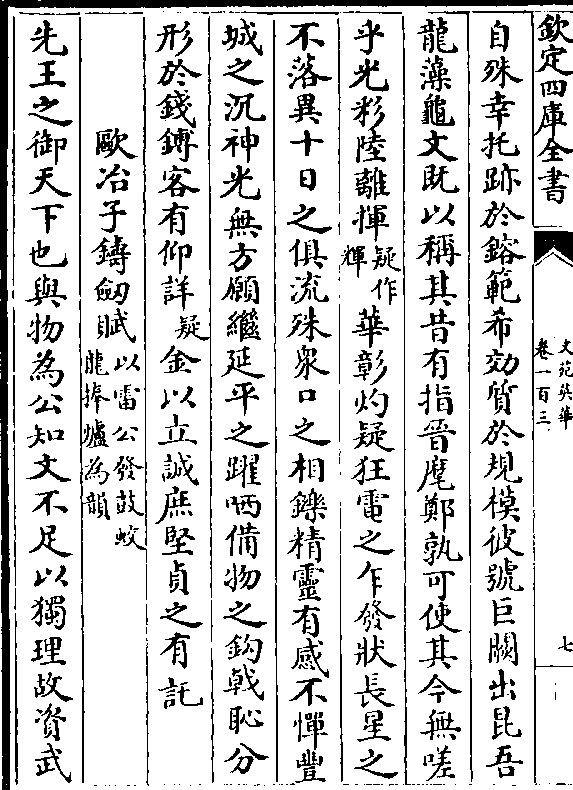 欽定四庫全書
文苑英華
卷一百三
七
自殊幸托跡於鎔範希効質於規模彼號巨闕出昆吾
龍藻龜文既以稱其昔有指晉麾鄭孰可使其今無嗟
乎光彩陸離揮疑作輝華彰灼疑狂電之乍發狀長星之
不落異十日之俱流殊衆口之相鑠精靈有感不憚豐
城之沉神光無方願繼延平之躍哂備物之鈎戟恥分
形於錢鎛客有仰詳疑金以立誠庶堅貞之有託
歐冶子鑄劒賦以雷公發鼓蛟龍捧爐為韻
先王之御天下也與物為公知文不足以獨理故資武